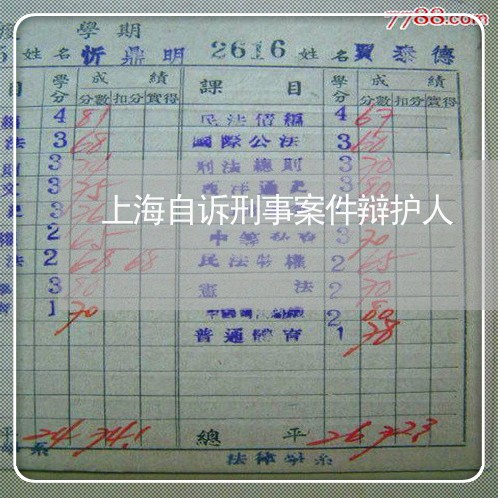 7788.com
學期
姓名 忻鼎明 2616 姓名 賈泰德
目 學分 成績 課目 學分 成績
分數 扣分 實得 分數 扣分 實得
4 81 民法債編 4 67
法 3 68 國際公法 3 60
3 刑法總則 3 70
3 75 西洋通史 3
3
上海自诉刑事案件辩护人
2 65 3 70
法 2 68 68 民法物權 2 65
3 80 憲法 2 70
1 70 2 80
普通體育 1 78
平 24 74.1 總平 26 72.3
系 法律學系